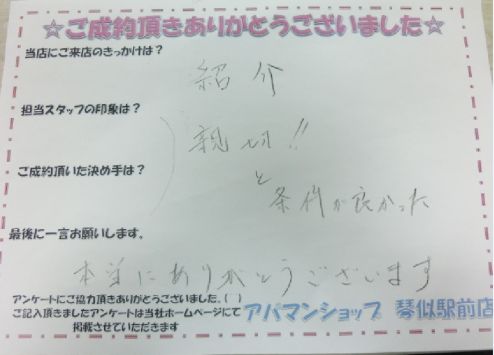 ☆ご成約頂きありがとうございました☆
当店にご来店のきっかけは？
紹介
担当スタッフの印象は？
親切!!
ご成約頂いた決め手は？
と
条件が良かった
最後に一言お願いします。
本当にありがとうございます
アンケートにご協力頂きありがとうございました。( )
ご記入頂きましたアンケートは当社ホームページにて
掲載させていただきます
アパマンショップ 琴似駅前店